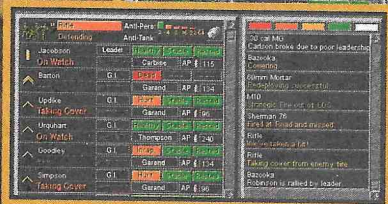 Rifle
Defending
Anti-Pers
Anti-Tank
Jacobson Leader Healthy Stable Rested
On Watch Carbine AP 115
Barton G.I. Dead
Garand AP 134
Updike G.I. Hurt Stable Rested
Taking Cover Garand AP 96
Urquhart G.I. Healthy Stable Rested
On Watch Thompson AP 240
Goodley G.I. Incap Stable Rested
Garand AP 134
Simpson G.I. Hurt Stable Rested
Taking Cover Garand AP 96
.30 cal MG
Carlson broke due to poor leadership
Bazooka
Cowering
60mm Mortar
Redeploying successful
M10
Strategic Fire out of LOS
Sherman 76
Fired at Road and missed
Rifle
We've taken a hit!
Rifle
Taking cover from enemy fire
Bazooka
Robinson is rallied by leader